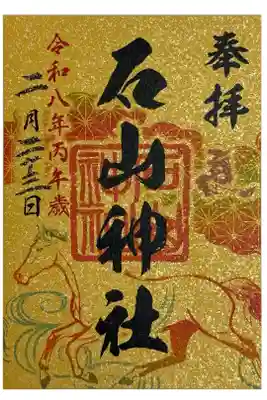 奉拝
石山神社
令和八年丙午歳
二月 日